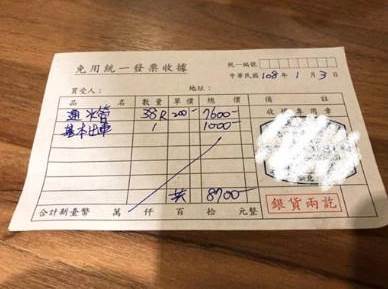 免用統一發票收據
統一編號
中華民國 108 年 1 月 3 日
買受人： 地址：
品名 數量 單價 總價 備註
通水管 38尺 200- 7600-
基本出車 1 1000-
共 8700-
銀貨兩訖
合計新臺幣 萬 仟 百 拾 元整